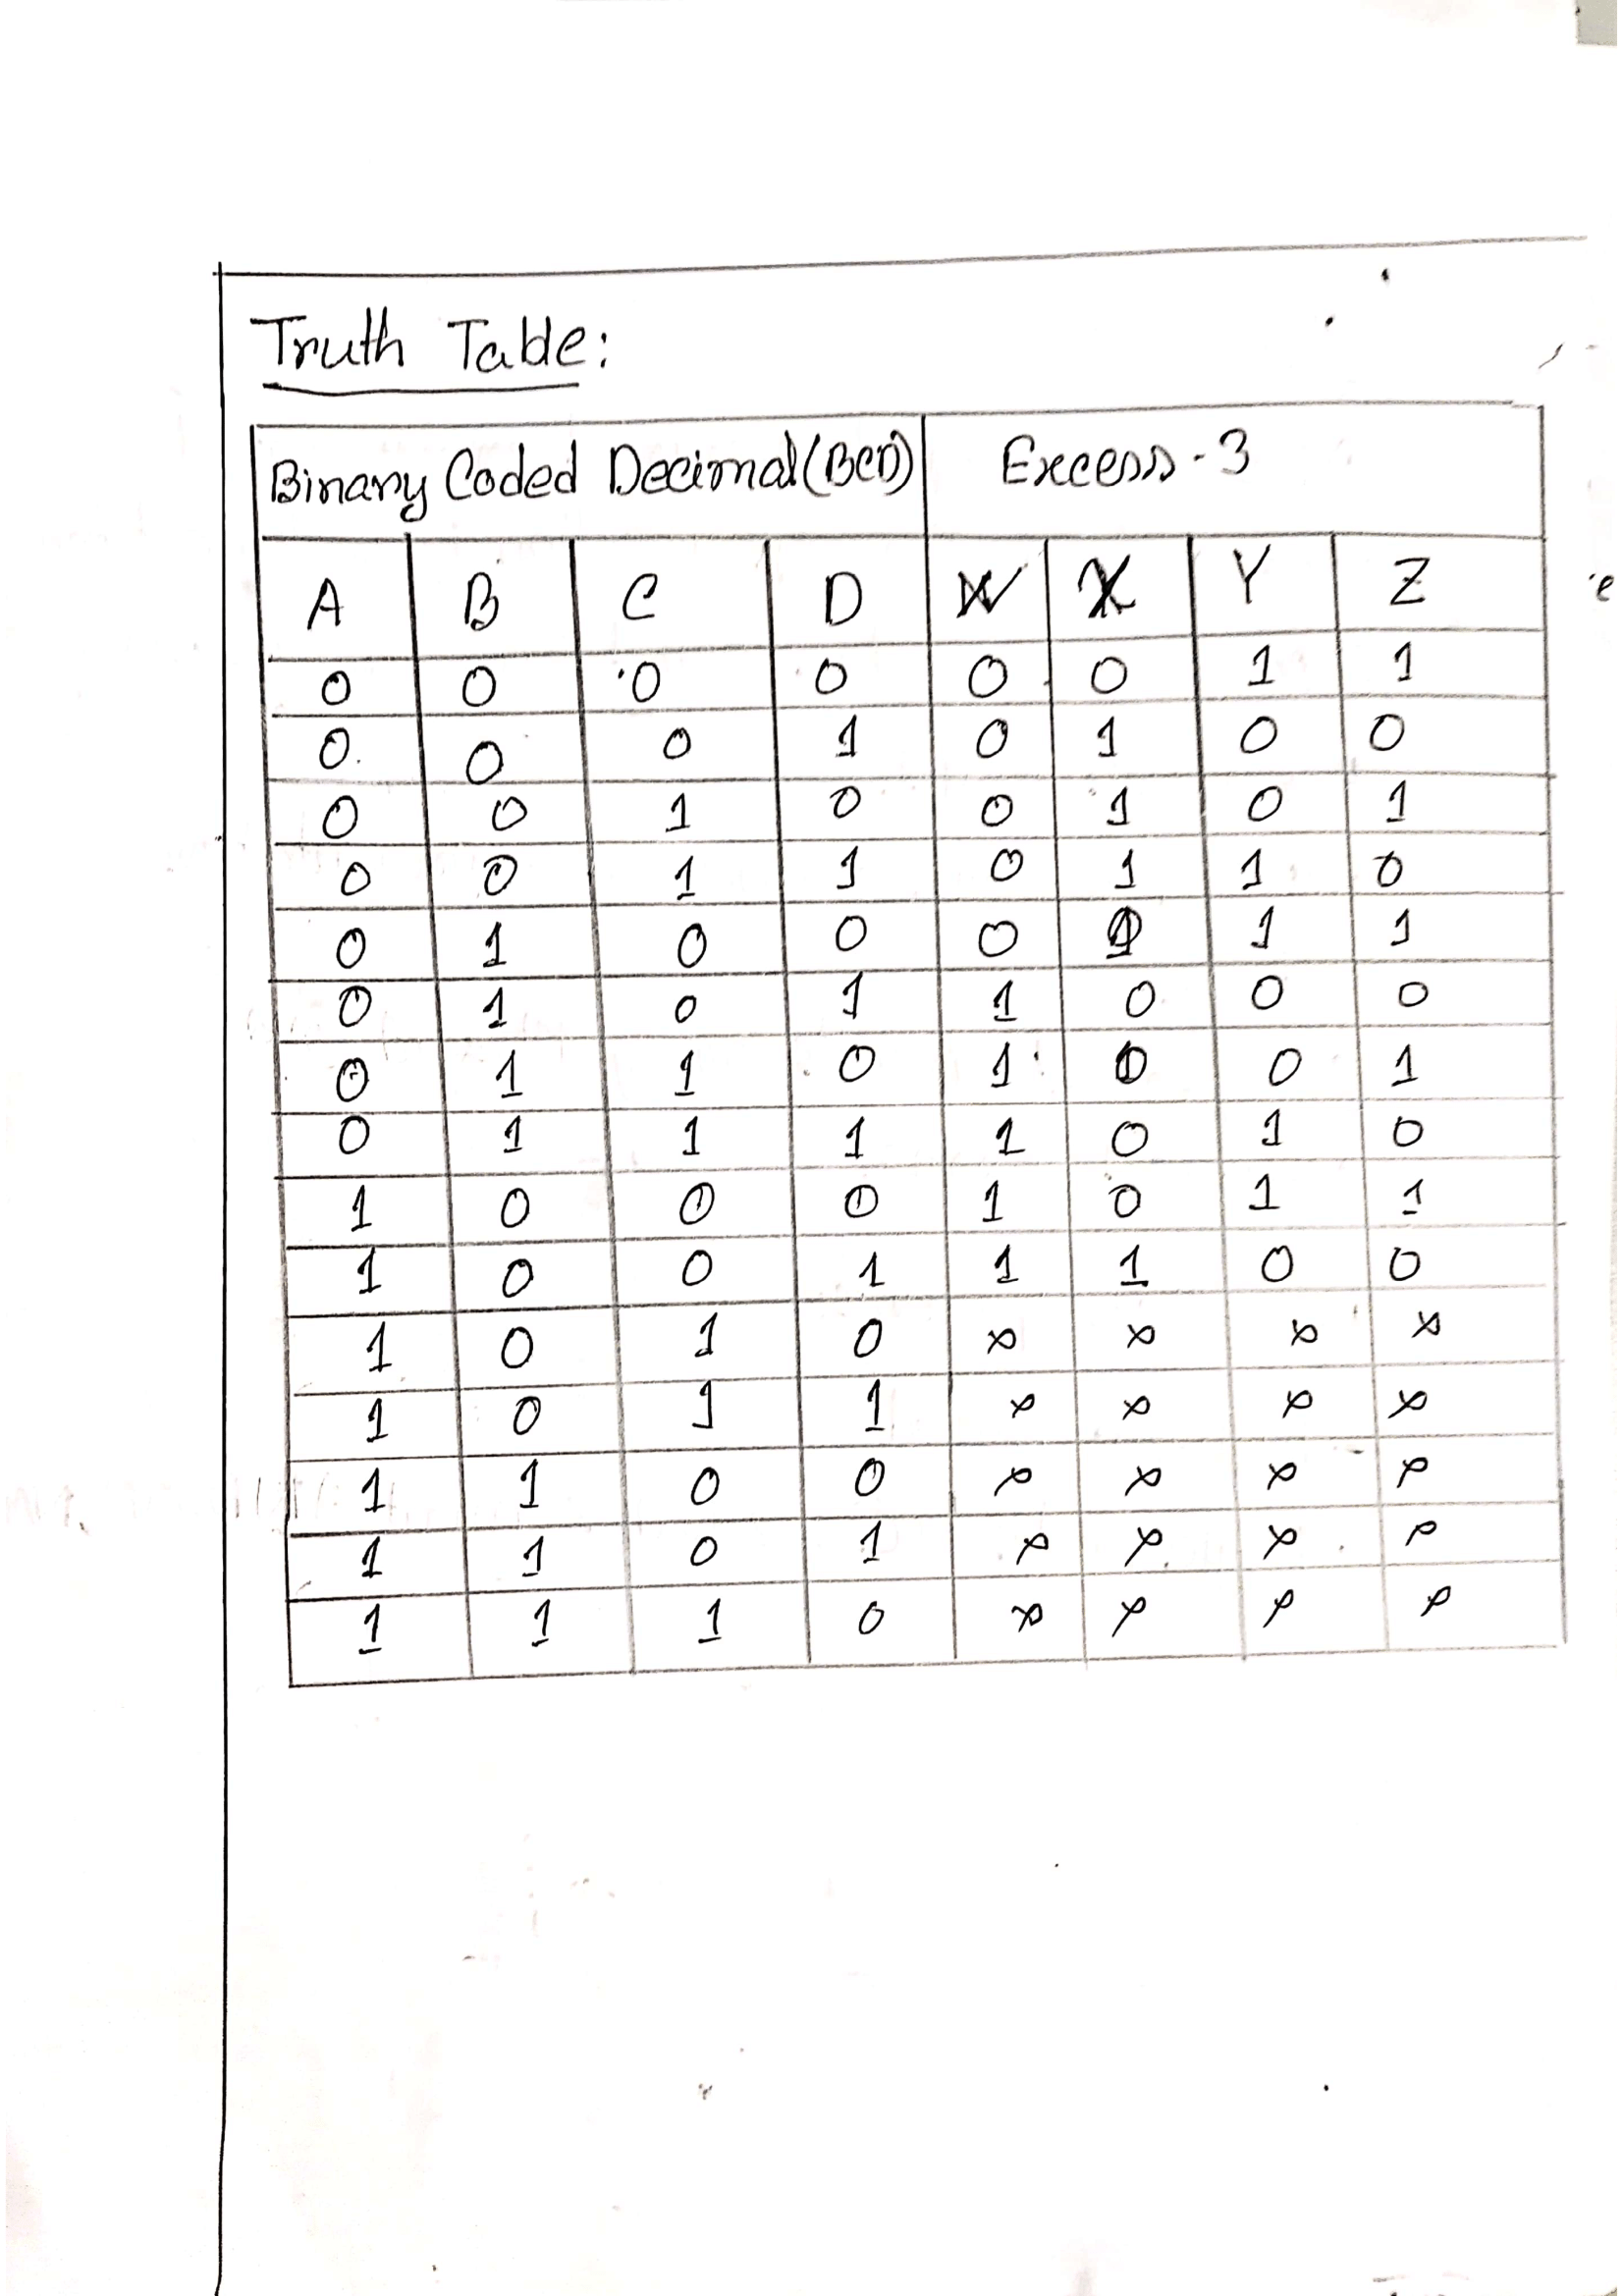 Truth Table:
Binary Coded Decimal (BCD) Excess-3
A B C D W X Y Z
0 0 0 0 0 0 1 1
0 0 0 1 0 1 0 0
0 0 1 0 0 1 0 1
0 0 1 1 0 1 1 0
0 1 0 0 0 1 1 1
0 1 0 1 1 0 0 0
0 1 1 0 1 0 0 1
0 1 1 1 1 0 1 0
1 0 0 0 1 0 1 1
1 0 0 1 1 1 0 0
1 0 1 0 x x x x
1 0 1 1 x x x x
1 1 0 0 x x x x
1 1 0 1 x x x x
1 1 1 0 x x x x